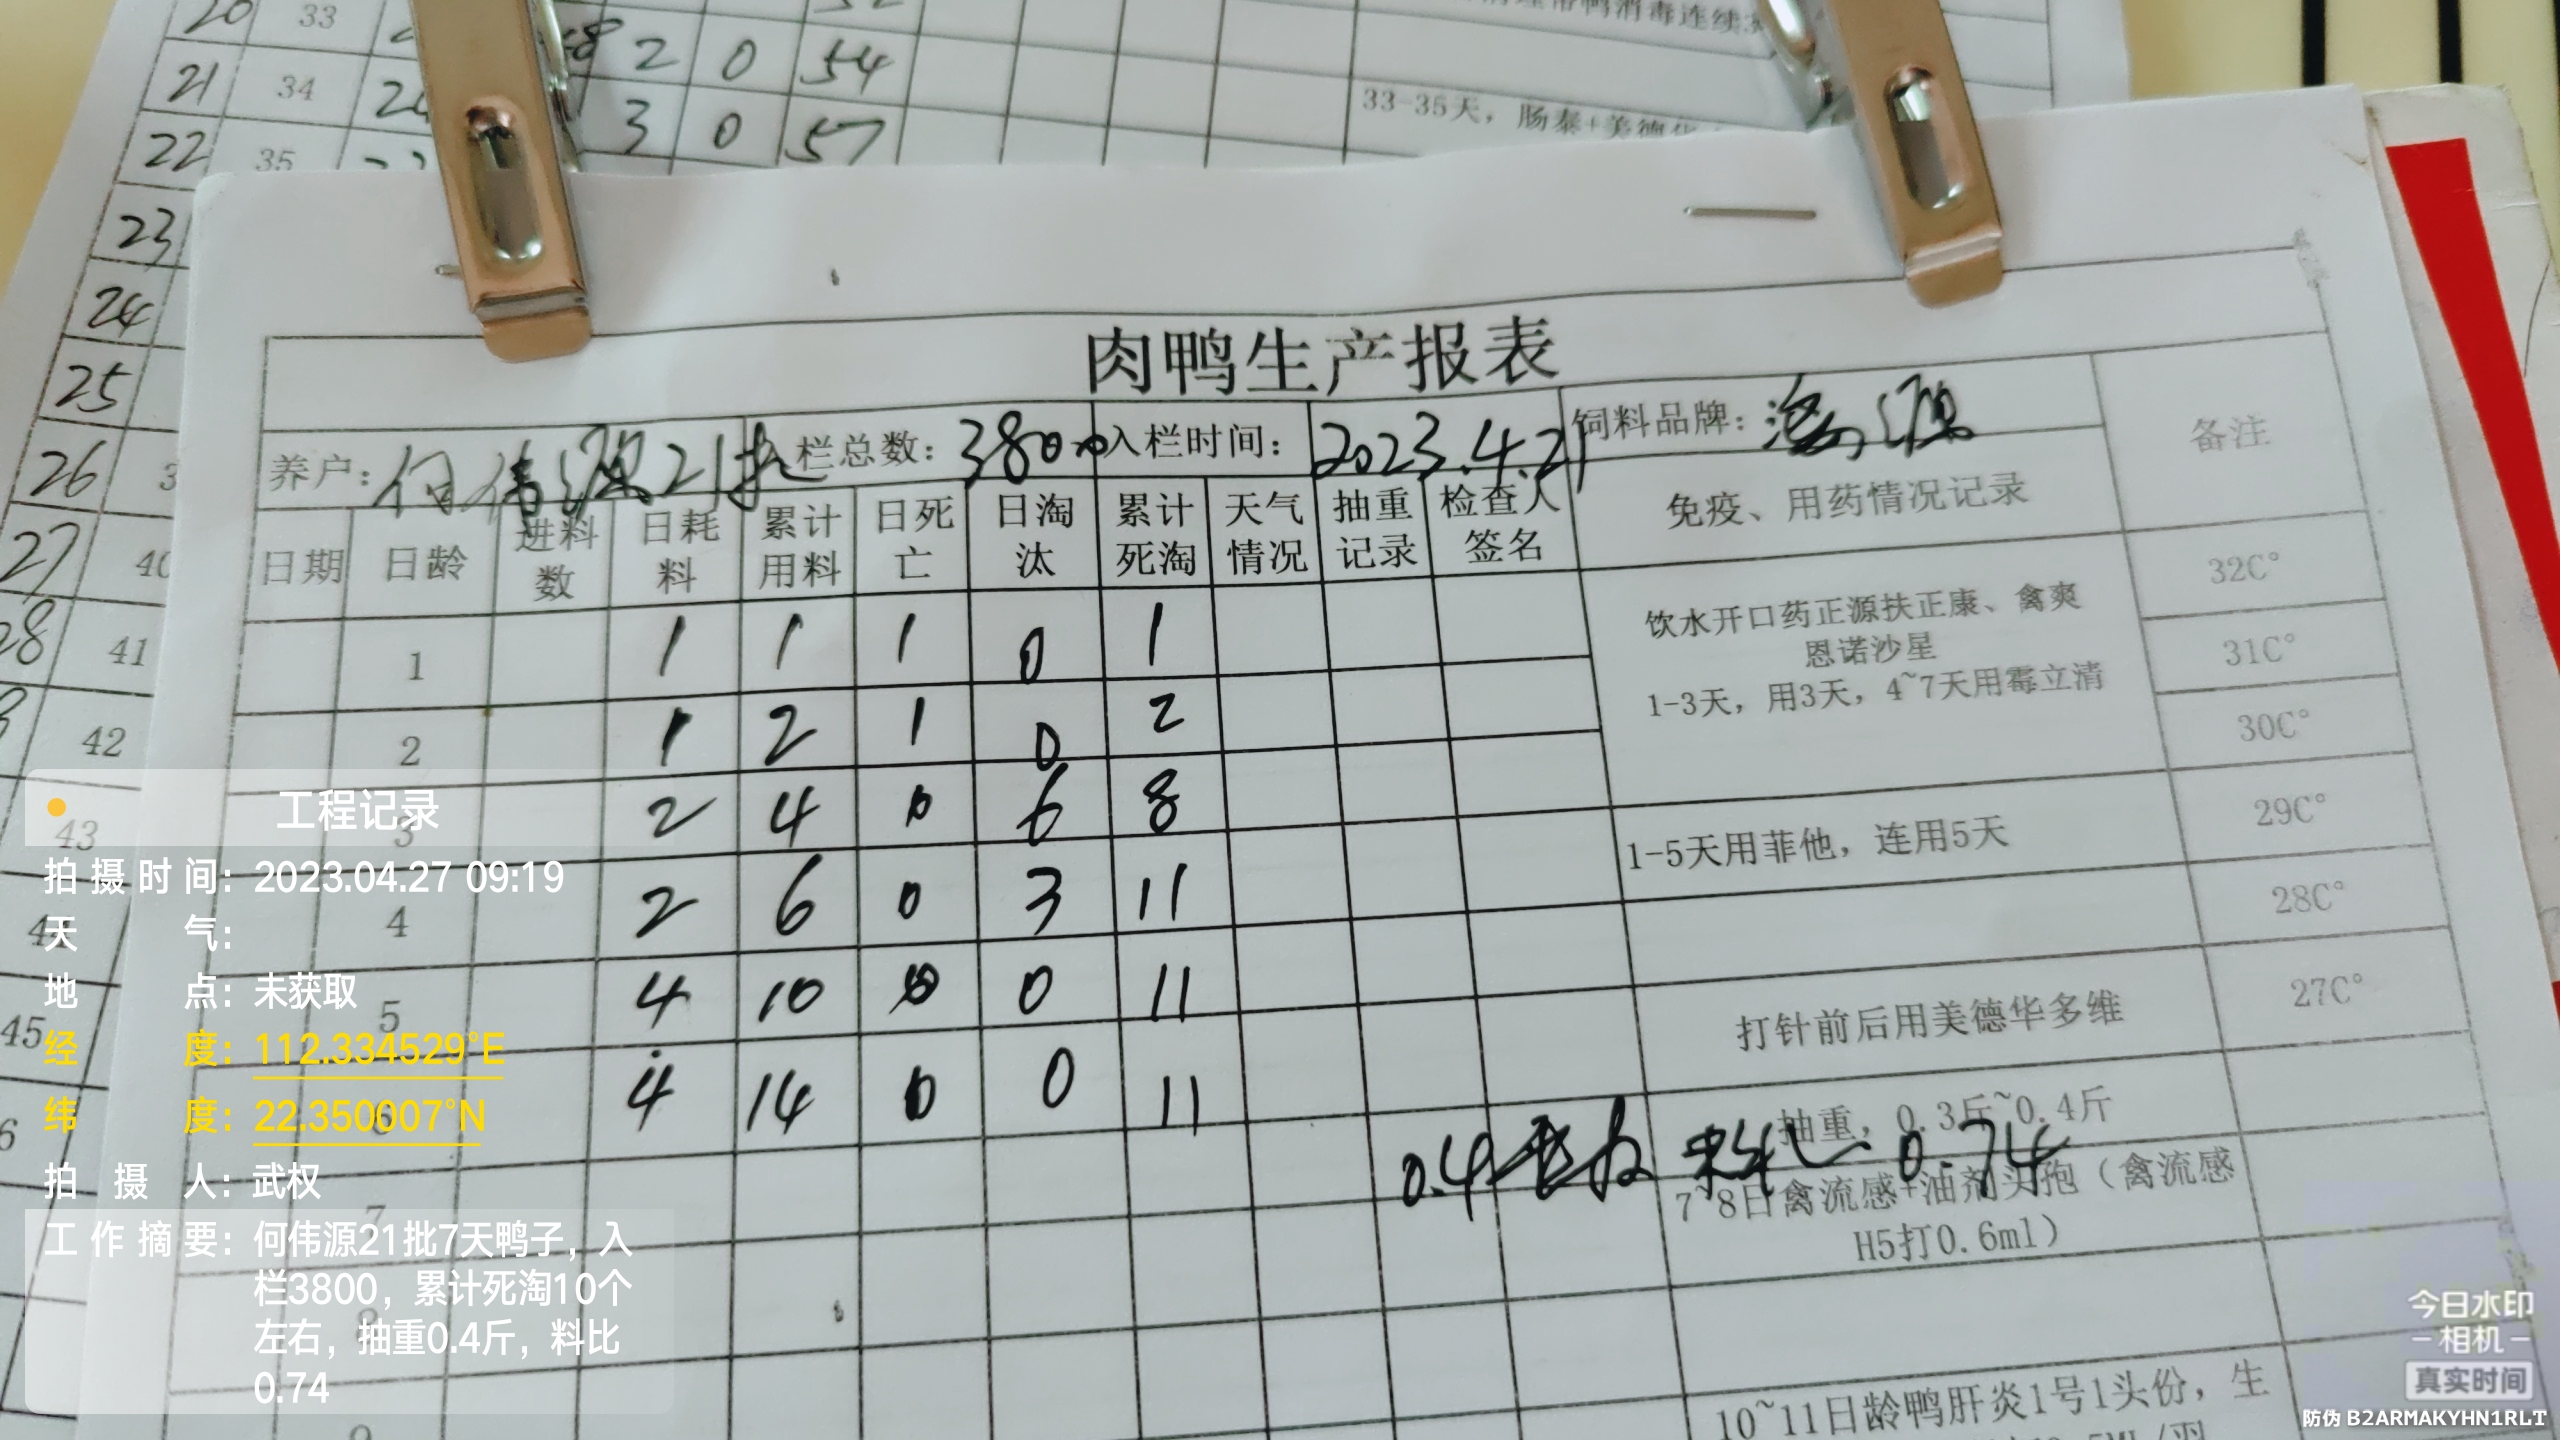 20 33
21 34 2 0 54
22 35 3 0 57
23
24
25
26
27 40
28 41
42
43
44
45
33-35天，肠泰+美德华
肉鸭生产报表
养户：何伟源21批 栏总数：3800 入栏时间：2023.4.21 饲料品牌： 备注
日期 日龄 进料数 日耗料 累计用料 日死亡 日淘汰 累计死淘 天气情况 抽重记录 检查人签名 免疫、用药情况记录
1 1 1 1 0 1
2 1 2 1 0 2
3 2 4 0 6 8
4 2 6 0 3 11
5 4 10 0 0 11
6 4 14 0 0 11
7
8
9
饮水开口药正源扶正康、禽爽
恩诺沙星
1-3天，用3天，4~7天用霉立清
1-5天用菲他，连用5天
打针前后用美德华多维
抽重，0.3斤~0.4斤
0.4 料比 0.74
7~8日禽流感+油剂头孢（禽流感
H5打0.6ml）
10~11日龄鸭肝炎1号1头份，生
32C°
31C°
30C°
29C°
28C°
27C°
工程记录
拍摄时间：2023.04.27 09:19
天气：
地点：未获取
经度：112.334529°E
纬度：22.350007°N
拍摄人：武权
工作摘要：何伟源21批7天鸭子，入
栏3800，累计死淘10个
左右，抽重0.4斤，料比
0.74
今日水印
相机
真实时间
防伪 B2ARMAKYHN1RLT